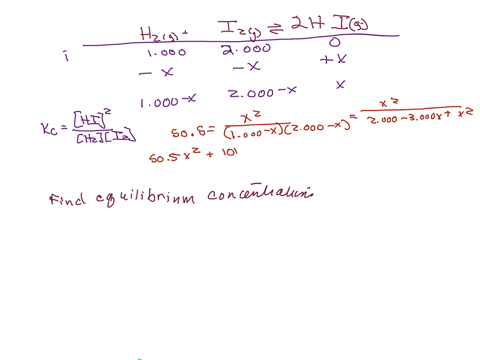 H₂(g) + I₂(g) ⇌ 2H I(g)
i 1.000 2.000 0
-x -x +x
1.000-x 2.000-x x
Kc = [HI]² / [H₂][I₂] 50.5 = x² / (1.000-x)(2.000-x) = x² / 2.000-3.000x+x²
50.5x² + 101
Find equilibrium concentrations